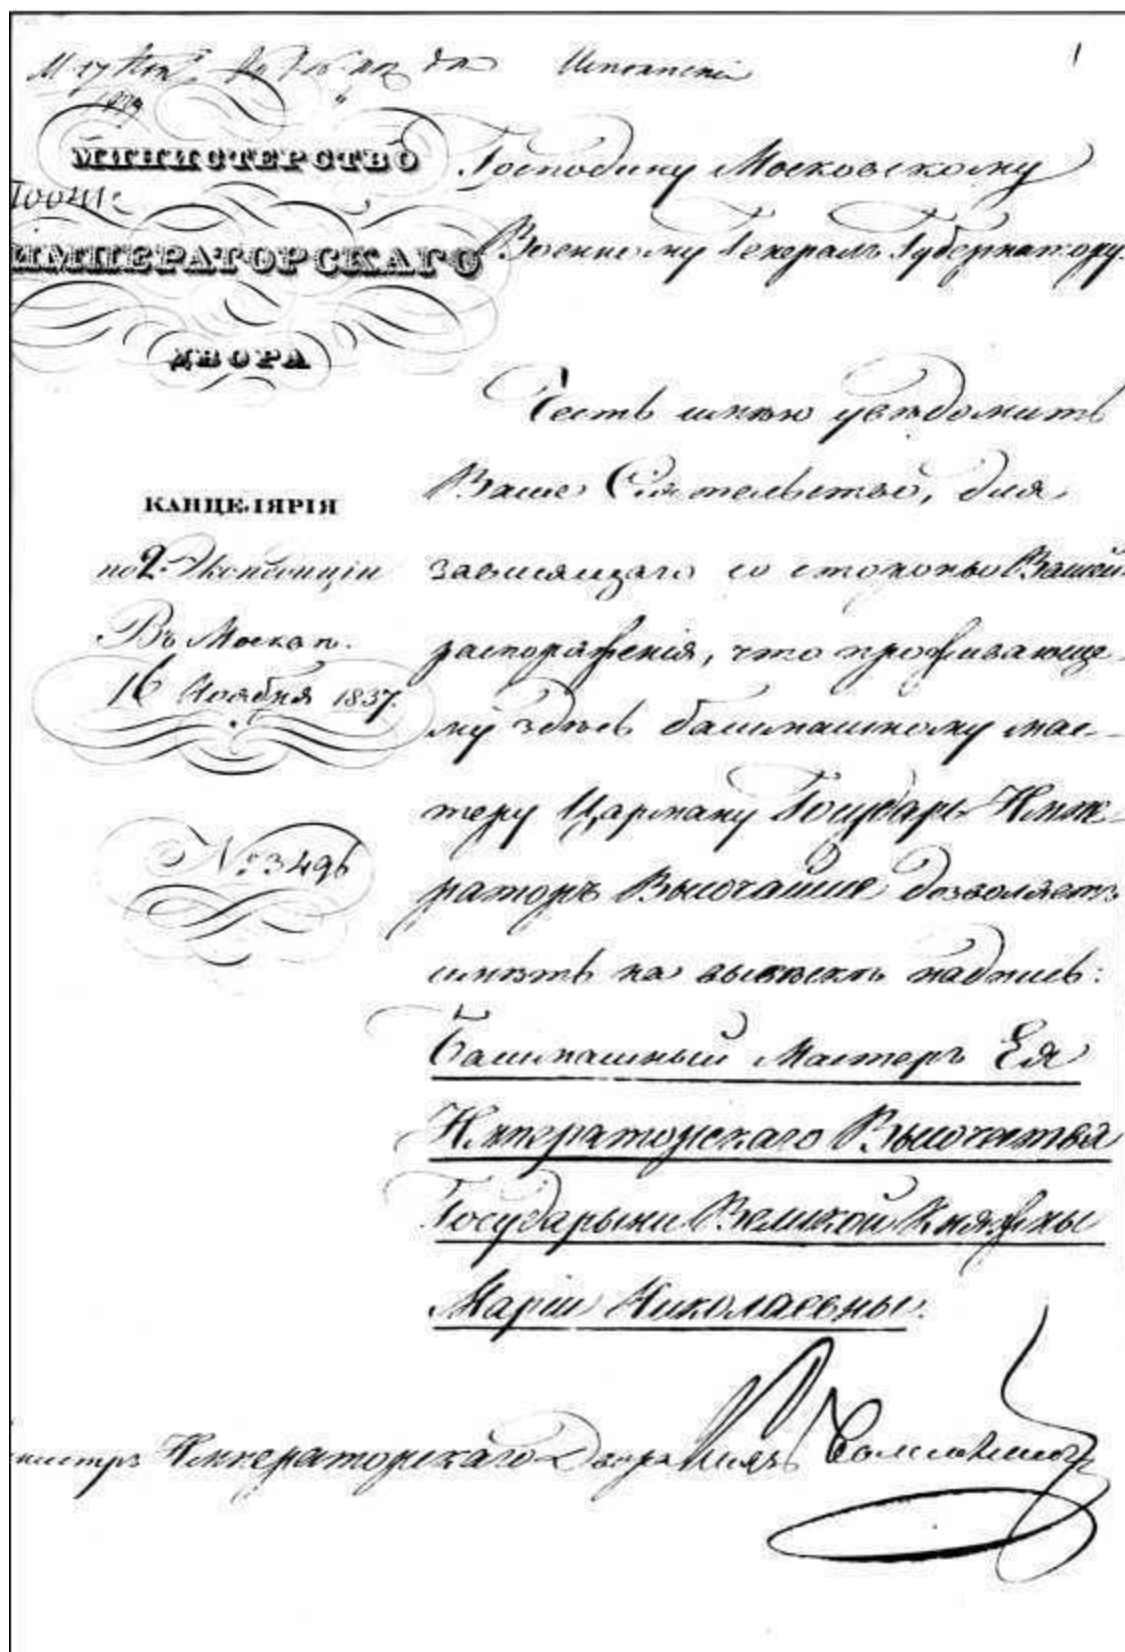 1
МИНИСТЕРСТВО
ИМПЕРАТОРСКАГО
ДВОРА
КАНЦЕЛЯРІЯ
по 2. Экспедиціи
Въ Москвѣ.
16 Ноября 1837.
№ 3496
Господину Московскому
Военному Генералъ Губернатору.
Честь имѣю увѣдомить
Ваше Сіятельство, для
зависящаго со стороны Вашей
распоряженія, что проживающе-
му здѣсь башмашному мас-
теру Царману Государь Импе-
раторъ Высочайше дозволяетъ
имѣть на вывѣскѣ надпись:
Башмашный Мастеръ Ея
Императорскаго Высочества
Государыни Великой Княжны
Маріи Николаевны.
Министръ Императорскаго Двора Князь